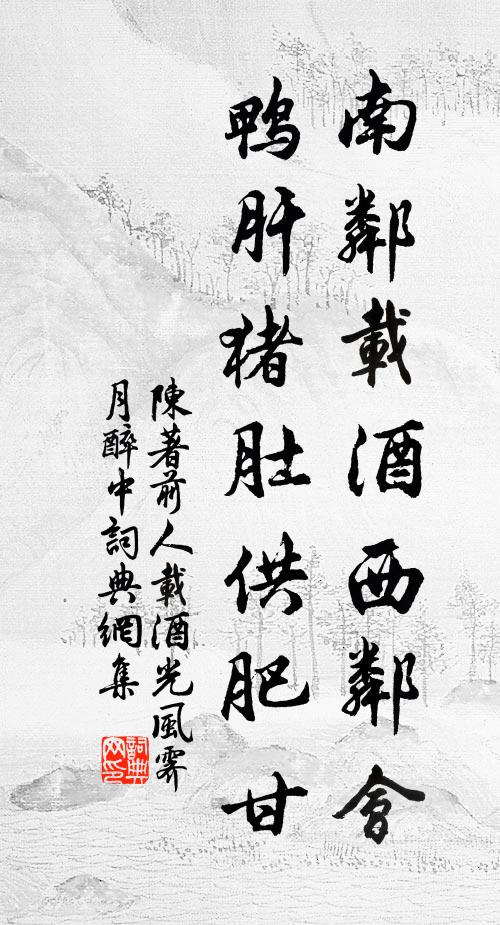 南鄰載酒西鄰會
鴨肝猪肚供肥甘
陳著前人載酒光風霽
月醉中詞典網集
詞典网印